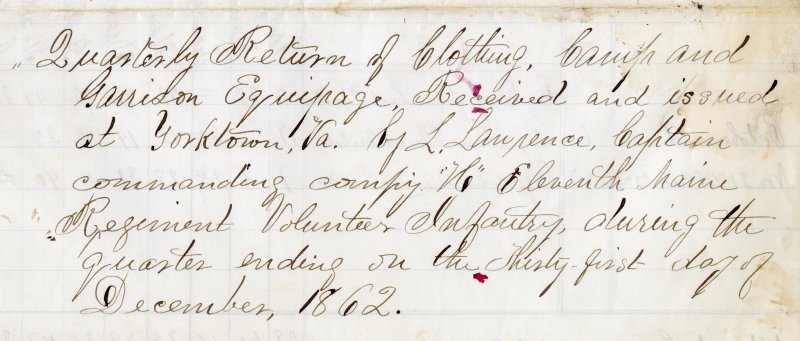 „ Quarterly Return of Clothing, Camp and
Garrison Equipage, Received and issued
at Yorktown, Va. by L. Lawrence, Captain
commanding compy. "H" Eleventh Maine
„ Regiment Volunteer Infantry, during the
quarter ending on the thirty-first day of
December, 1862.